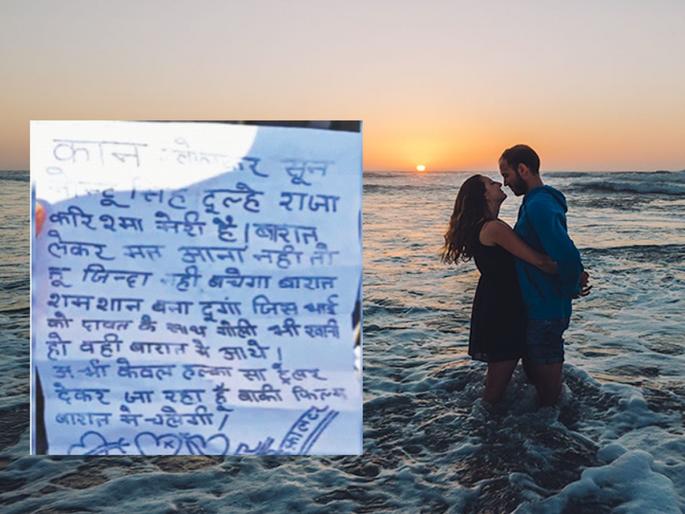 कान लगाकर सून
दूल्हे राजा
करिश्मा मेरी है। बारात
लेकर मत आना नही तो
तू जिन्दा नही बचेगा बारात
शमशान बना दूंगा जिस भाई
को दावत के साथ गोली भी खानी
हो वही बारात मे आये।
अभी केवल हल्का सा ट्रेलर
देकर जा रहा है बाकी फिल्म
बारात मे चलेगी।